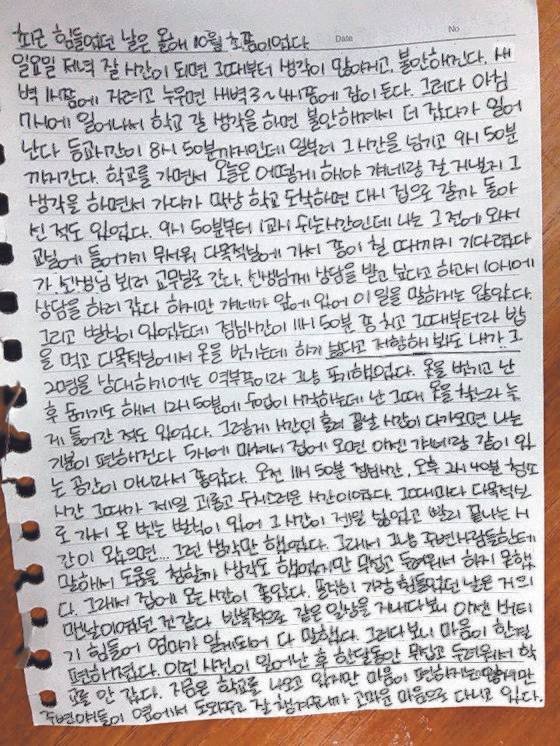 최근 힘들었던 날은 올해 10월 초쯤이었다
Date No
일요일 저녁 잘 시간이 되면 그때부터 생각이 많아지고, 불안해진다. 새
벽 1시쯤에 자려고 누우면 새벽 3~4시쯤에 잠이 든다. 그러다 아침
7시에 일어나서 학교 갈 생각을 하면 불안해져서 더 잤다가 일어
난다 등교시간이 8시 50분까지인데 일부러 그 시간을 넘기고 9시 50분
까지간다. 학교를 가면서 오늘은 어떻게 하야 걔네랑 잘 지낼지 그
생각을 하면서 가다가 막상 학교 도착하면 다시 집으로 갈까 돌아
선 적도 있었다. 9시 50분부터 1교시 쉬는시간인데 나는 그 전에 와서
교실에 들어가기 무서워 다목적실에 가서 종이 칠 때까지 기다렸다
가 선생님 보러 교무실로 간다. 선생님께 상담을 받고 싶다고 하고서 10시에
상담을 하러 갔다 하지만 걔네가 앞에 있어 이 일을 말하지는 않았다.
그리고 벌칙이 있었는데 점심시간이 11시 50분 쯤 치고 그때부터라 밥
을 먹고 다목적실에서 옷을 벗기는데 하기 싫다고 저항해 봐도 내가 그
20명을 상대하기에는 역부족이라 그냥 포기했었다. 옷을 벗기고 난
후 숨기기도 해서 12시 50분에 수업이 시작하는데 난 그때 옷을 찾느라 늦
게 들어간 적도 있었다. 그렇게 시간이 흘러 끝날 시간이 다가오면 나는
기분이 편해진다 5시에 마쳐서 집에 오면 이젠 걔네랑 같이 있
는 공간이 아니라서 좋았다. 오전 11시 50분 점심시간, 오후 2시 40분 청소
시간 그때가 제일 괴롭고 수치스러운 시간이었다. 그때마다 다목적실
로 가서 옷 벗는 벌칙이 있어 그 시간이 제일 싫었고 빨리 끝나는 시
간이 왔으면... 그런 생각만 했었다. 그래서 그냥 주변사람들한테
말해서 도움을 청할까 생각도 했었지만 무섭고 두려워서 하지 못했
다. 그래서 집에 오는 시간이 좋았다. 솔직히 가장 힘들었던 날은 거의
맨날이였던 것 같다. 반복적으로 같은 일상을 지내다보니 이젠 버티
기 힘들어 엄마가 알게되어 다 말했다. 그러다보니 마음이 한결
편해졌다. 이런 사건이 일어난 후 한달동안 무섭고 두려워서 학
교를 안 갔다. 지금은 학교를 나오고 있지만 마음이 편하지는 않지만
주변아이들이 옆에서 도와주고 잘 챙겨줘서 고마운 마음으로 다니고 있다.